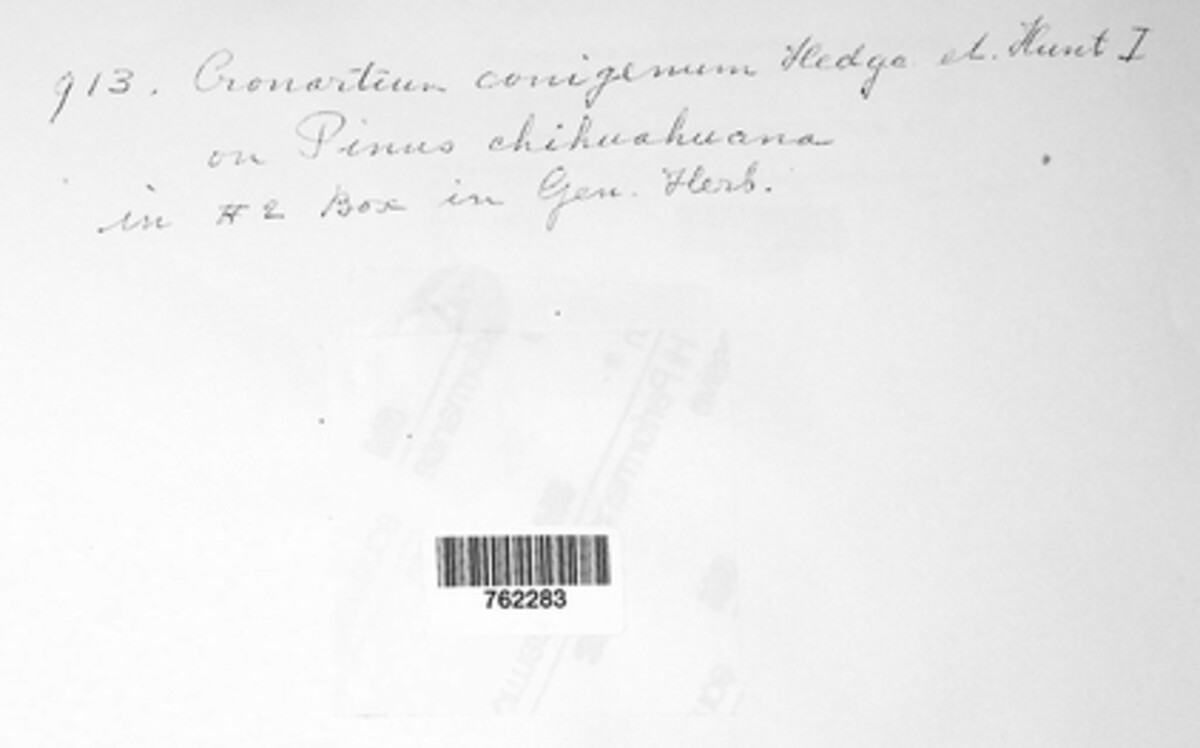 913. Cronartium conigenum Hedgc et. Hunt I
on Pinus chihuahuana
in #2 Box in Gen. Herb.
762283